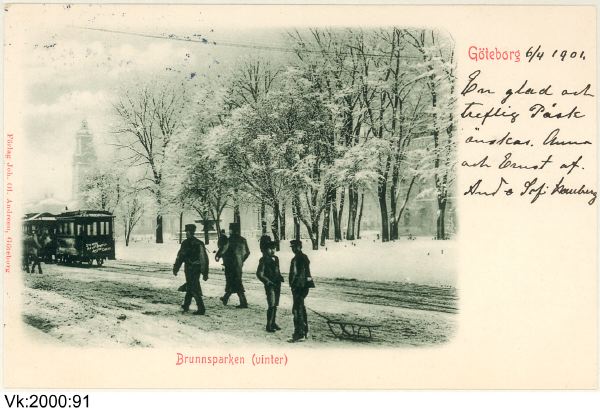 Göteborg 6/4 1901.
En glad och
treflig Påsk
önskas Anna
och Ernst af
And. o Sof.
Förlag Joh. Ol. Andreen, Göteborg
Brunnsparken (vinter)
Vk:2000:91